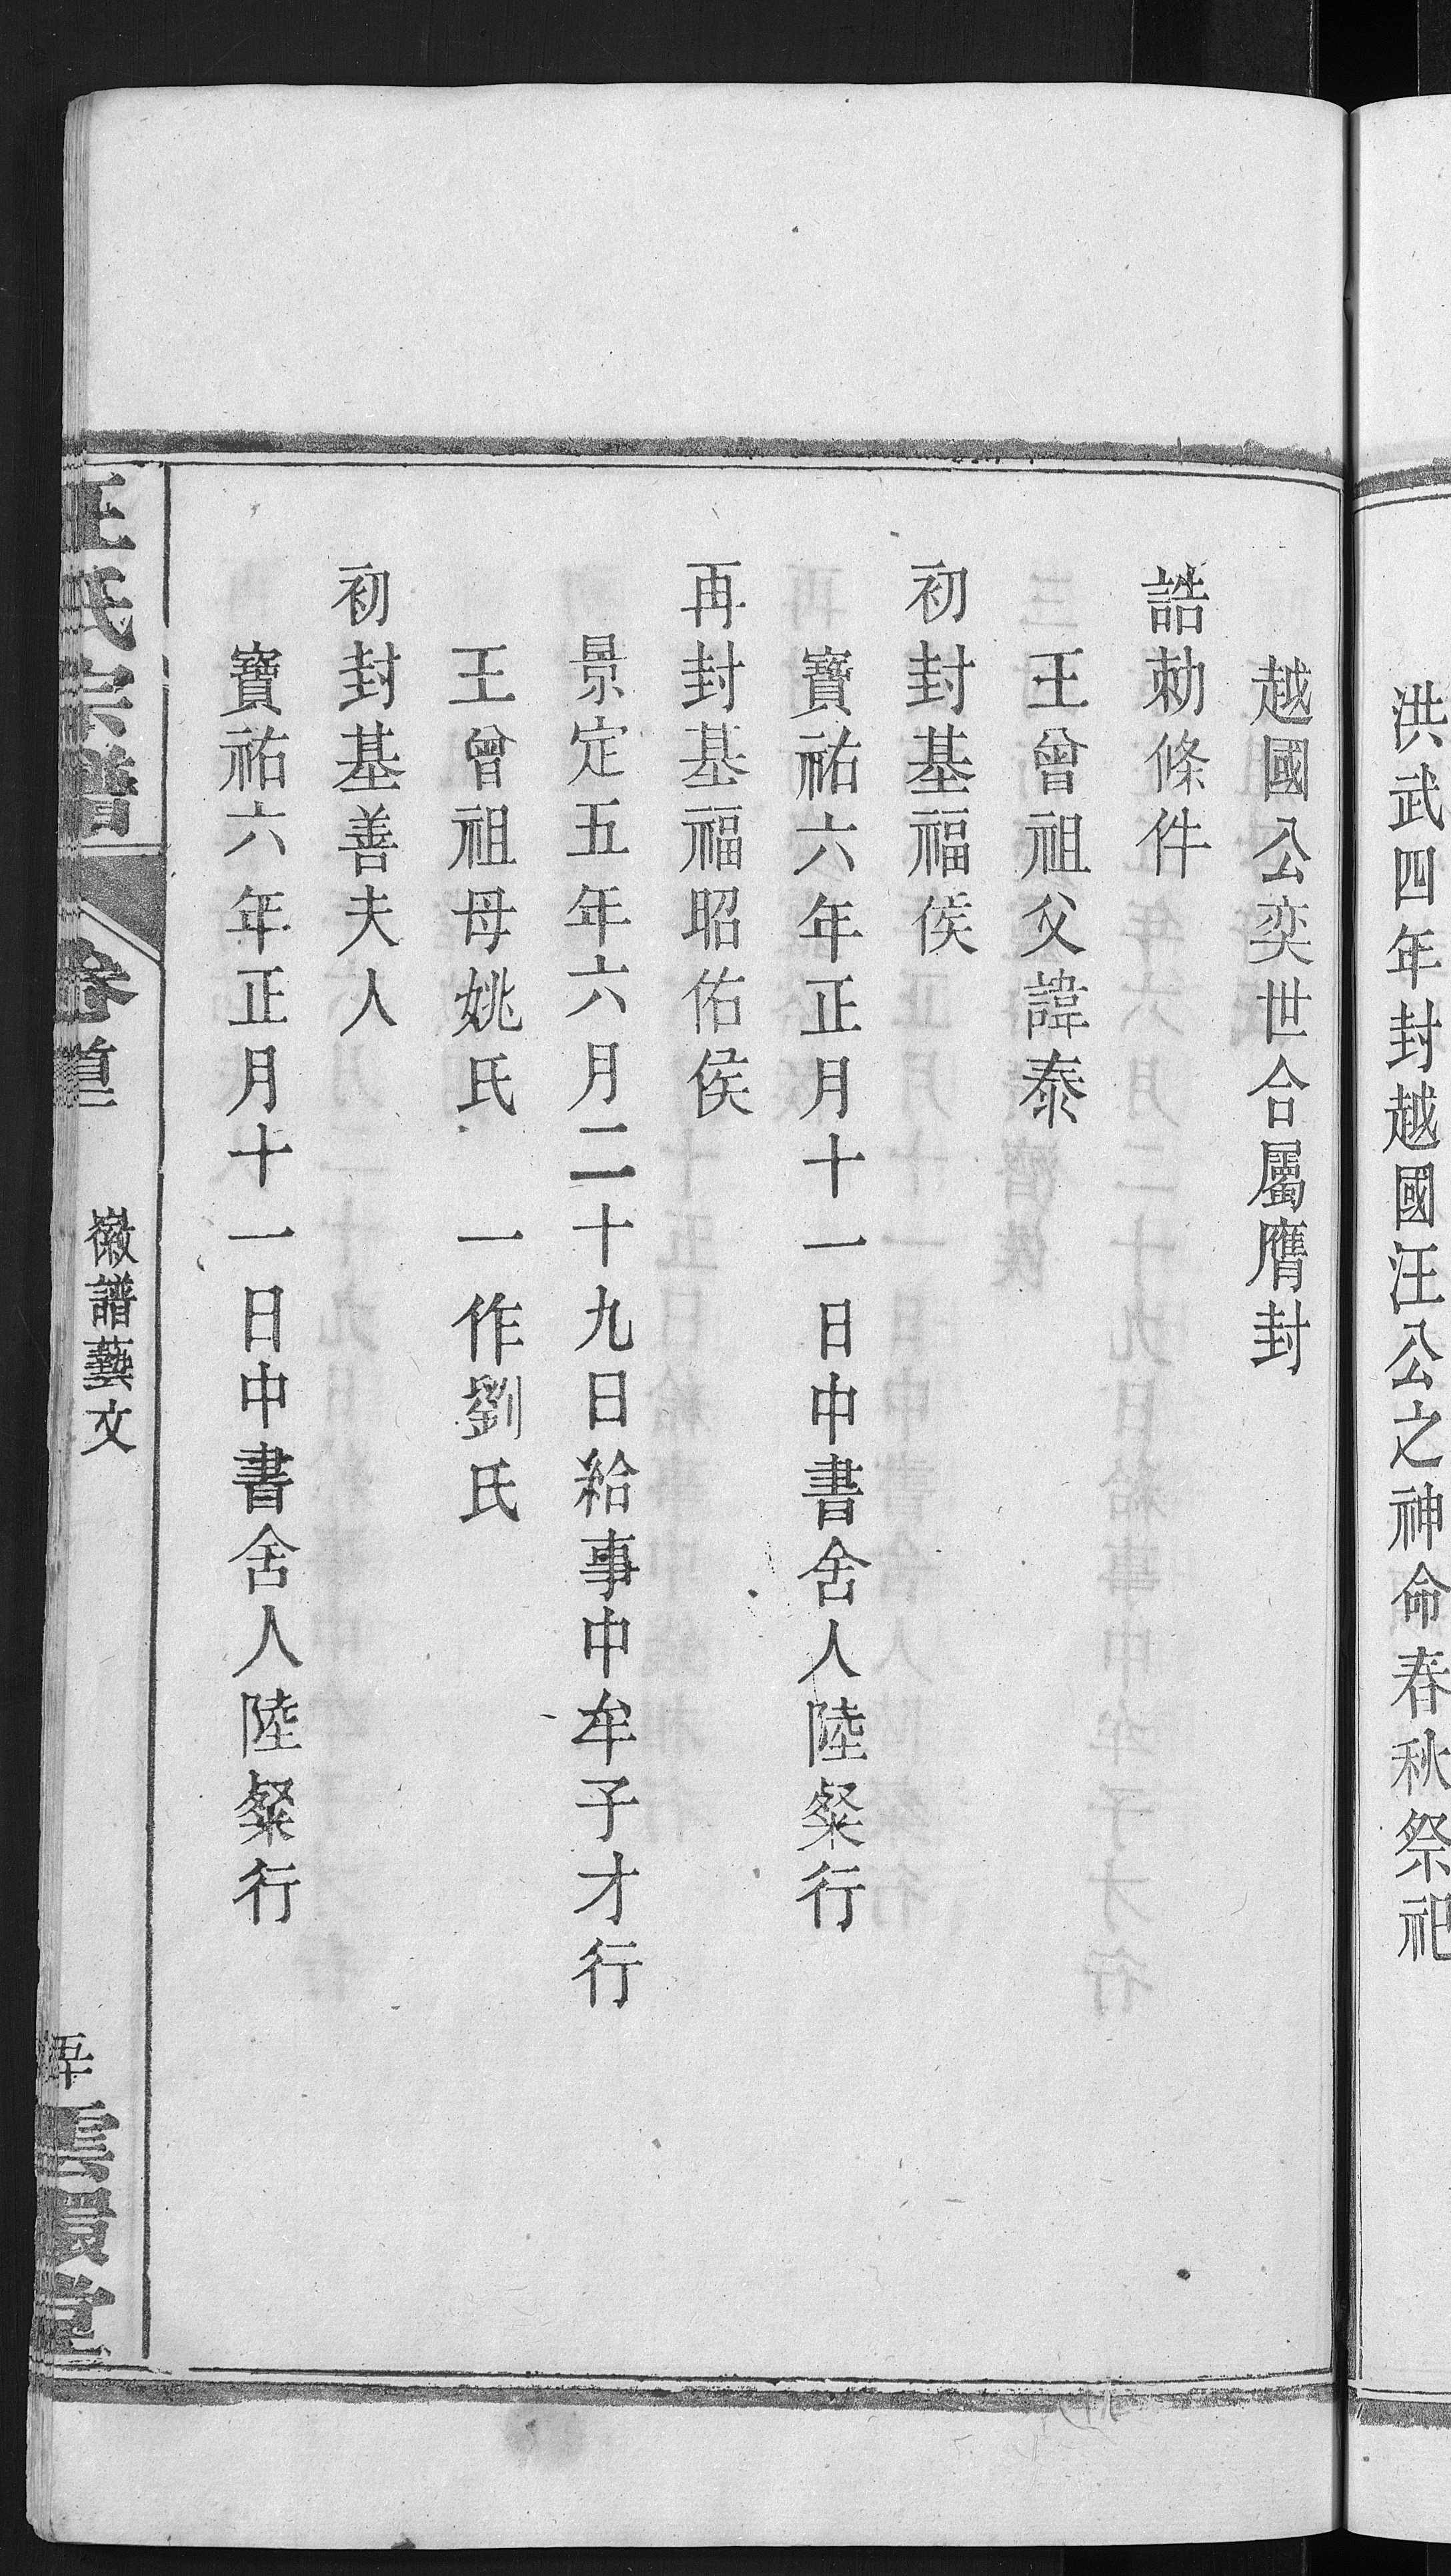 洪武四年封越國汪公之神命春秋祭祀
越國公奕世合屬膺封
誥勅條件
王曾祖父諱泰
初封基福侯
寶祐六年正月十一日中書舍人陸粲行
再封基福昭佑侯
景定五年六月二十九日給事中牟子才行
王曾祖母姚氏 一作劉氏
初封基善夫人
寶祐六年正月十一日中書舍人陸粲行
氏宗譜 卷首 徽譜藝文 五十